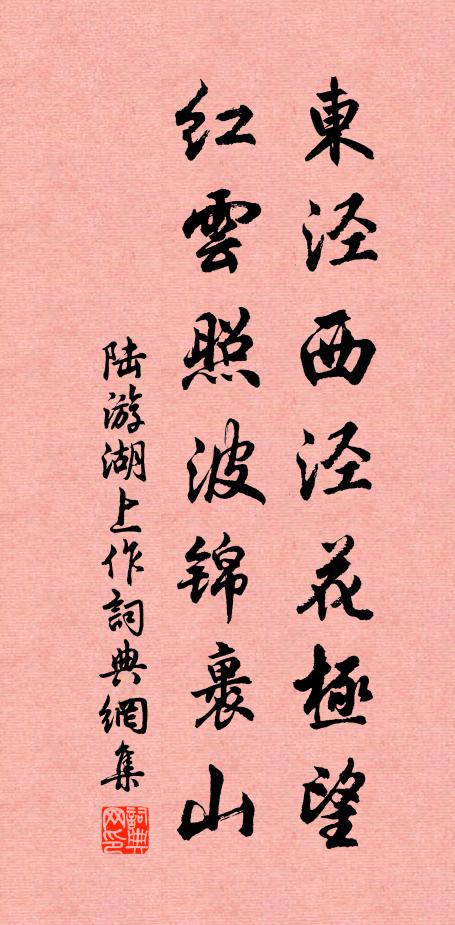 東泾西泾花極望
紅雲照波錦裹山
陆游湖上作詞典網集
詞典网印